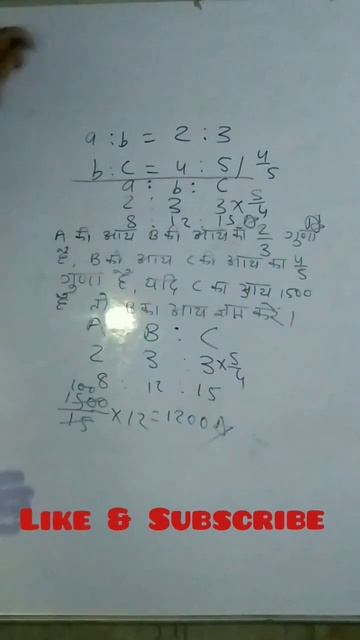 a : b = 2 : 3
b : c = 4 : 5 / 4/5
a : b : c
2 : 3 3 × 5/4
8 : 12 : 15
A की आय B की आय का 2/3 गुणा
है, B की आय C की आय का 4/5
गुणा है, यदि C का आय 1500
है तो B का आय ज्ञात करें।
A : B : C
2 3 : 3 × 5/4
8 : 12 : 15
100
1500/15 × 12 = 1200 A
LIKE & SUBSCRIBE